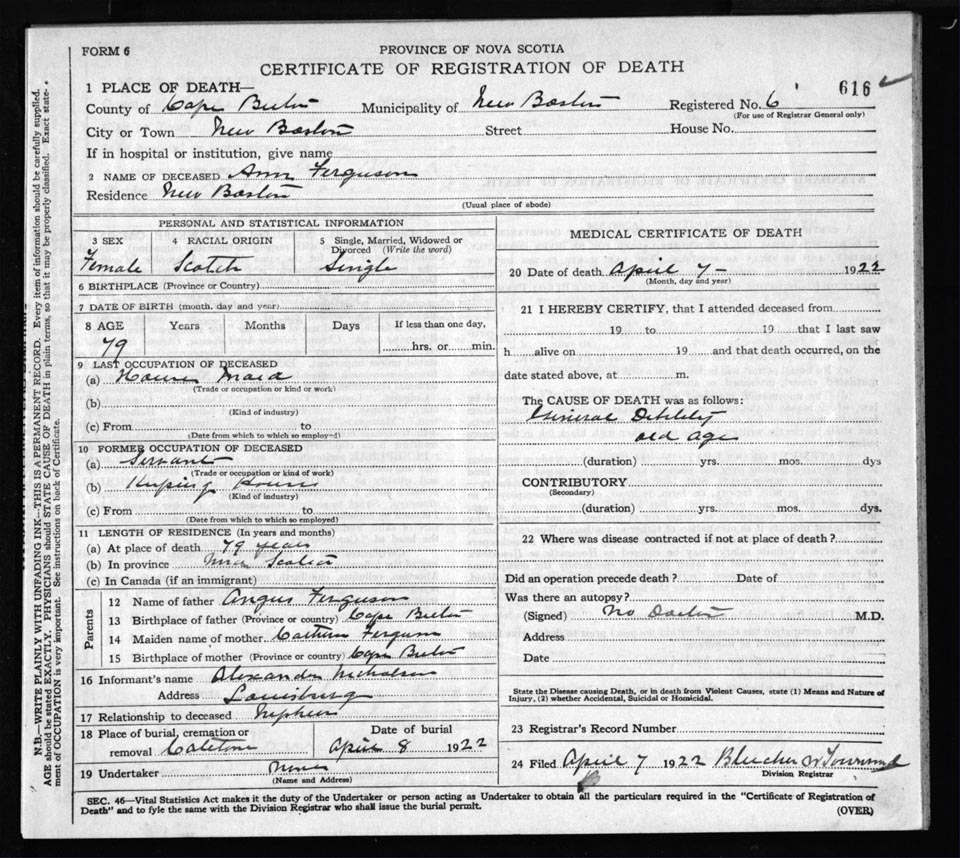 FORM 6
PROVINCE OF NOVA SCOTIA
CERTIFICATE OF REGISTRATION OF DEATH
616
1 PLACE OF DEATH—
County of Cape Breton Municipality of New Boston Registered No. 6
(For use of Registrar General only)
City or Town New Boston Street House No.
If in hospital or institution, give name
2 NAME OF DECEASED Ann Ferguson
Residence New Boston
(Usual place of abode)
PERSONAL AND STATISTICAL INFORMATION
3 SEX 4 RACIAL ORIGIN 5 Single, Married, Widowed or Divorced (Write the word)
Female Scotch Single
6 BIRTHPLACE (Province or Country)
7 DATE OF BIRTH (month, day and year)
8 AGE Years Months Days If less than one day,
79 hrs. or min.
9 LAST OCCUPATION OF DECEASED
(a) House Maid
(Trade or occupation or kind or work)
(b)
(Kind of industry)
(c) From to
(Date from which to which so employed)
10 FORMER OCCUPATION OF DECEASED
(a) Servant
(Trade or occupation or kind of work)
(b) Keeping House
(Kind of industry)
(c) From to
(Date from which to which so employed)
11 LENGTH OF RESIDENCE (In years and months)
(a) At place of death 79 years
(b) In province Nova Scotia
(c) In Canada (if an immigrant)
Parents
12 Name of father Angus Ferguson
13 Birthplace of father (Province or country) Cape Breton
14 Maiden name of mother Ferguson
15 Birthplace of mother (Province or country) Cape Breton
16 Informant's name Alexander Nicholson
Address Louisburg
17 Relationship to deceased Nephew
18 Place of burial, cremation or Date of burial
removal April 8 1922
19 Undertaker None
(Name and Address)
MEDICAL CERTIFICATE OF DEATH
20 Date of death April 7 — 1922
(Month, day and year)
21 I HEREBY CERTIFY, that I attended deceased from
19 to 19 that I last saw
h alive on 19 and that death occurred, on the
date stated above, at m.
The CAUSE OF DEATH was as follows:
General Debility
old age
(duration) yrs. mos. dys
CONTRIBUTORY
(Secondary)
(duration) yrs. mos. dys.
22 Where was disease contracted if not at place of death?
Did an operation precede death? Date of
Was there an autopsy?
(Signed) No Doctor M.D.
Address
Date
State the Disease causing Death, or in death from Violent Causes, state (1) Means and Nature of
Injury, (2) whether Accidental, Suicidal or Homicidal.
23 Registrar's Record Number
24 Filed April 7 1922 Blucher W Townsend
Division Registrar
SEC. 46—Vital Statistics Act makes it the duty of the Undertaker or person acting as Undertaker to obtain all the particulars required in the "Certificate of Registration of
Death" and to fyle the same with the Division Registrar who shall issue the burial permit.
(OVER)
N.B.—WRITE PLAINLY WITH UNFADING INK—THIS IS A PERMANENT RECORD. Every item of information should be carefully supplied.
AGE should be stated EXACTLY. PHYSICIANS should STATE CAUSE OF DEATH in plain terms, so that it may be properly classified. Exact state-
ment of OCCUPATION is very important. See instructions on back of Certificate.